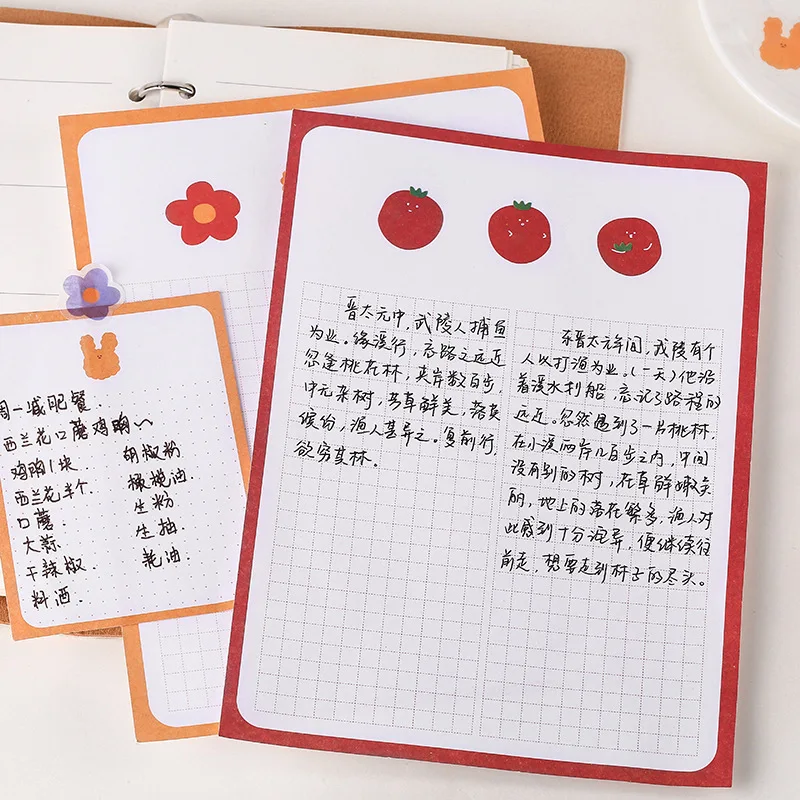 周一减肥餐.
西兰花口蘑鸡胸
鸡胸1块.
西兰花半个.
口蘑.
大蒜.
干辣椒
料酒.
胡椒粉
橄榄油.
生粉
生抽.
耗油.
晋太元中,武陵人捕鱼
为业。缘溪行,忘路之远近
忽逢桃花林,夹岸数百步,
中无杂树,芳草鲜美,落英
缤纷,渔人甚异之。复前行,
欲穷其林。
东晋太元年间,武陵有个
人以打渔为业。(一天)他沿
着溪水划船,忘记了路程的
远近。忽然遇到了一片桃林,
在小溪两岸几百步之内,中间
没有别的树,花草鲜嫩美
丽,地上的落花繁多,渔人对
此感到十分诧异,便继续往
前走,想要走到林子的尽头。